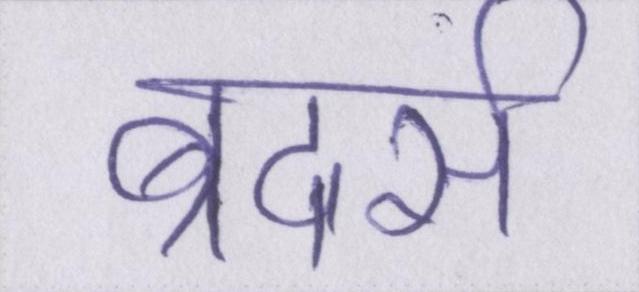 ब्रदर्स